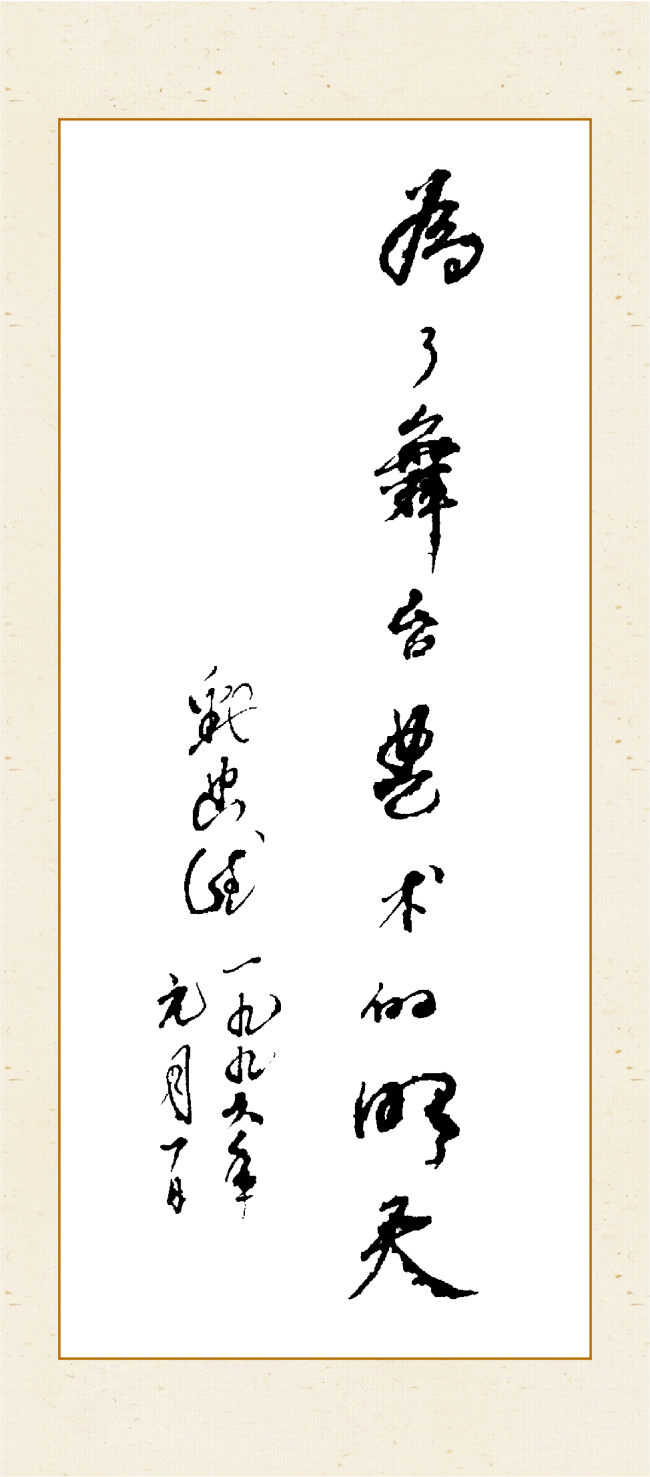 為了舞台艺术的明天
一九九六年
元月一日